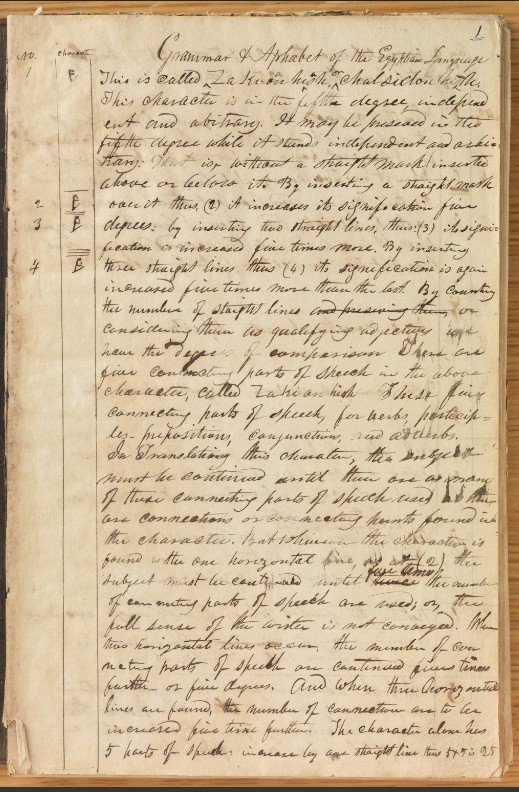 1
Grammar & Alphabet of the Egyptian Language
No. character
1
This is called Za Ki on hish, or chalsidon hish.
This character is in the fifth degree, independ
ent and abitrary. It may be preseved in the
fifth degree while it stands independent and arbi
trary: That is, without a straight mark inserted
above or below it. By inserting a straight mark
2 over it thus, (2) it increases its signification five
3 degrees: by inserting two straight lines, thus: (3) its signif-
ication is increased five times more. By inserting
4 three straight lines thus (4) its signification is again
increased five times more than the last. By counting
the number of staight lines and preseving them, or
considering them as qualifying adjectives we
have the degrees of comparison There are
five connecting parts of speech in the above
character, called Za ki on hish These five
connecting parts of speech, for verbs, particip-
les- prepositions, conjunctions, and adverbs.
In Translating this character, this subject
must be continued until there are as many
of these connecting parts of speech used as there
are connections or connecting points found in
the character. But whenever the character is
found with one horizontal line, as at (2) the
subject must be continued until five times twice the number
of connecting parts of speech are used; or, the
full sense of the writer is not conveyed. When
two horizontal lines occur, the number of con
necting parts of speech are continued five times
further- or five degrees. And when three horizontal
lines are found, the number of connections are to be
increased five times further. The character alone has
5 parts of speech: increase by one straight line thus 5x5 is 25